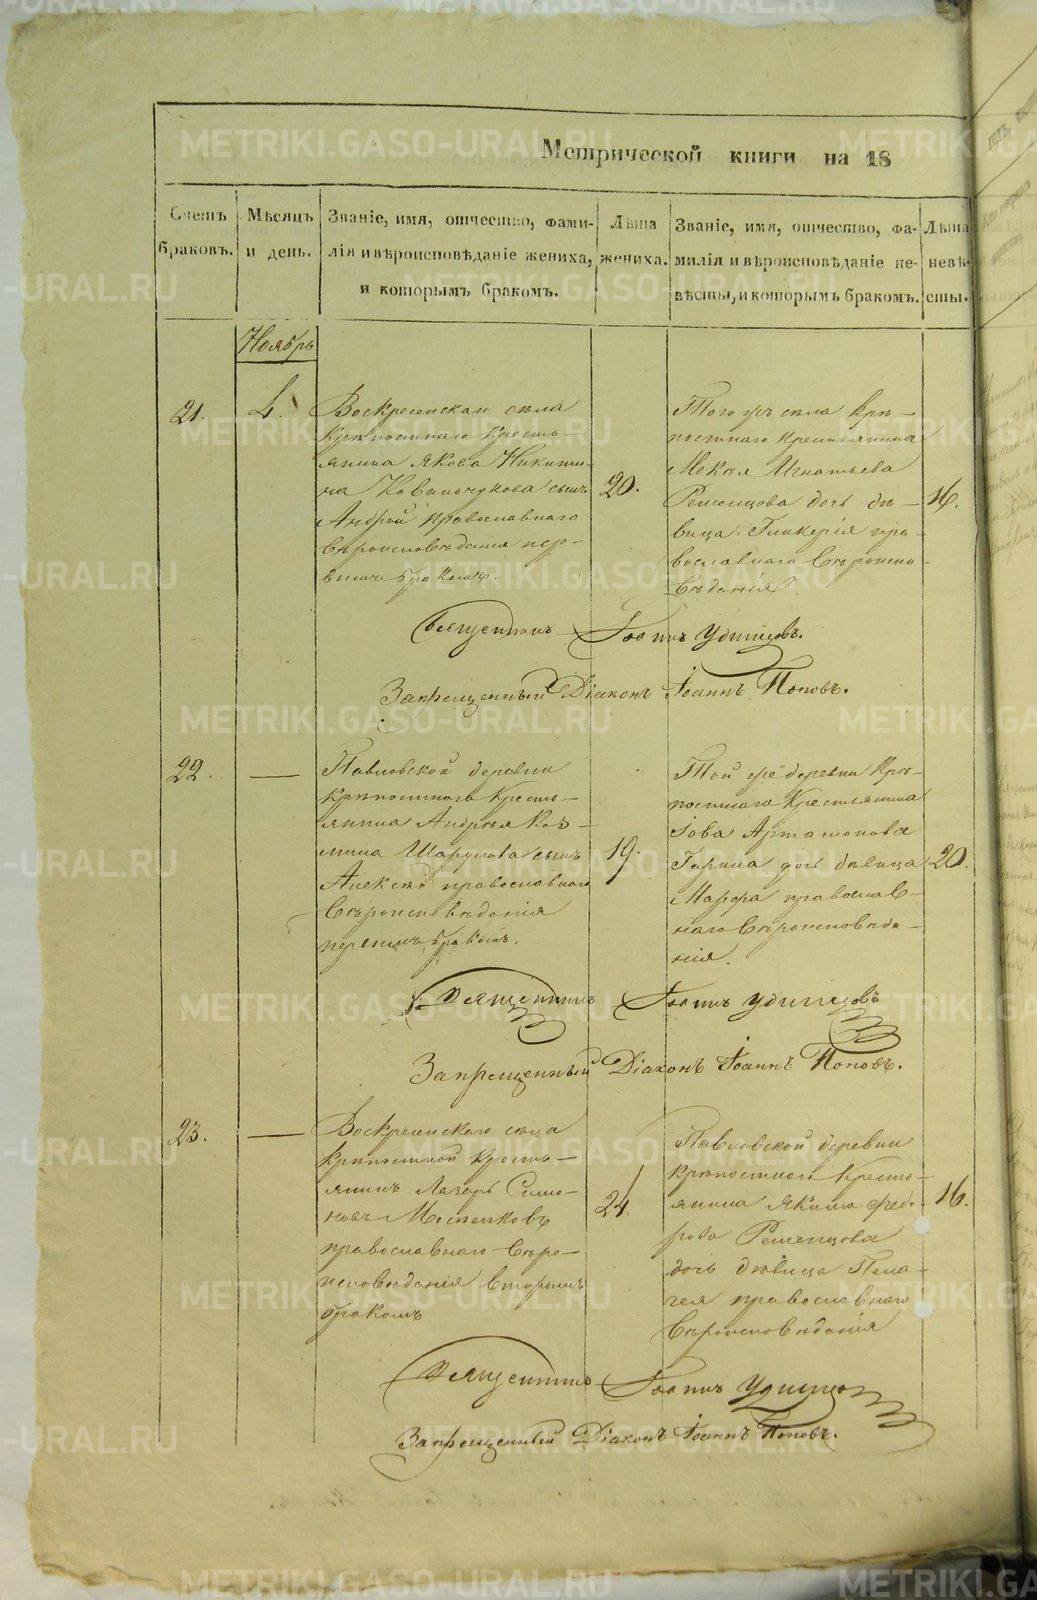 Метрической книги на 18
Счетъ браковъ.
Мѣсяцъ и день.
Званіе, имя, отчество, фами-
лія и вѣроисповѣданіе жениха,
и которымъ бракомъ.
Лѣта жениха.
Званіе, имя, отчество, фа-
милія и вѣроисповѣданіе не-
вѣсты, и которымъ бракомъ.
Лѣта невѣ-
сты.
Ноябрь
21.
4.
Воскресенскаго села
крѣпостнаго кресть-
янина Якова Никити-
на Ковальчукова сынъ
Андрей православнаго
вѣроисповѣданія пер-
вымъ бракомъ.
20.
Того жъ села крѣ-
постнаго крестьянина
Мокѣя Игнатьева
Решецова дочь дѣ-
вица Гликерія пра-
вославнаго вѣроиспо-
вѣданія.
16.
Священникъ Іоаннъ Удинцовъ.
Запрещенный Діаконъ Іоаннъ Поповъ.
22.
—
Павловской деревни
крѣпостнаго кресть-
янина Андрея Коз-
мина сынъ
Алексѣй православнаго
вѣроисповѣданія
первымъ бракомъ.
19.
Той же деревни крѣ-
постнаго крестьянина
Іова Артамонова
Гарина дочь дѣвица
Марфа православ-
наго вѣроисповѣда-
нія.
20.
Священникъ Іоаннъ Удинцовъ
Запрещенный Діаконъ Іоаннъ Поповъ.
23.
—
Воскресенскаго села
крѣпостной кресть-
янинъ Лазарь Симо-
новъ
православнаго вѣро-
исповѣданія вторымъ
бракомъ
24.
Павловской деревни
крѣпостнаго кресть-
янина Якима Федо-
рова Решецова
дочь дѣвица Пела-
гея православнаго
вѣроисповѣданія
16.
Священникъ Іоаннъ Удинцовъ
Запрещенный Діаконъ Іоаннъ Поповъ.
METRIKI.GASO-URAL.RU